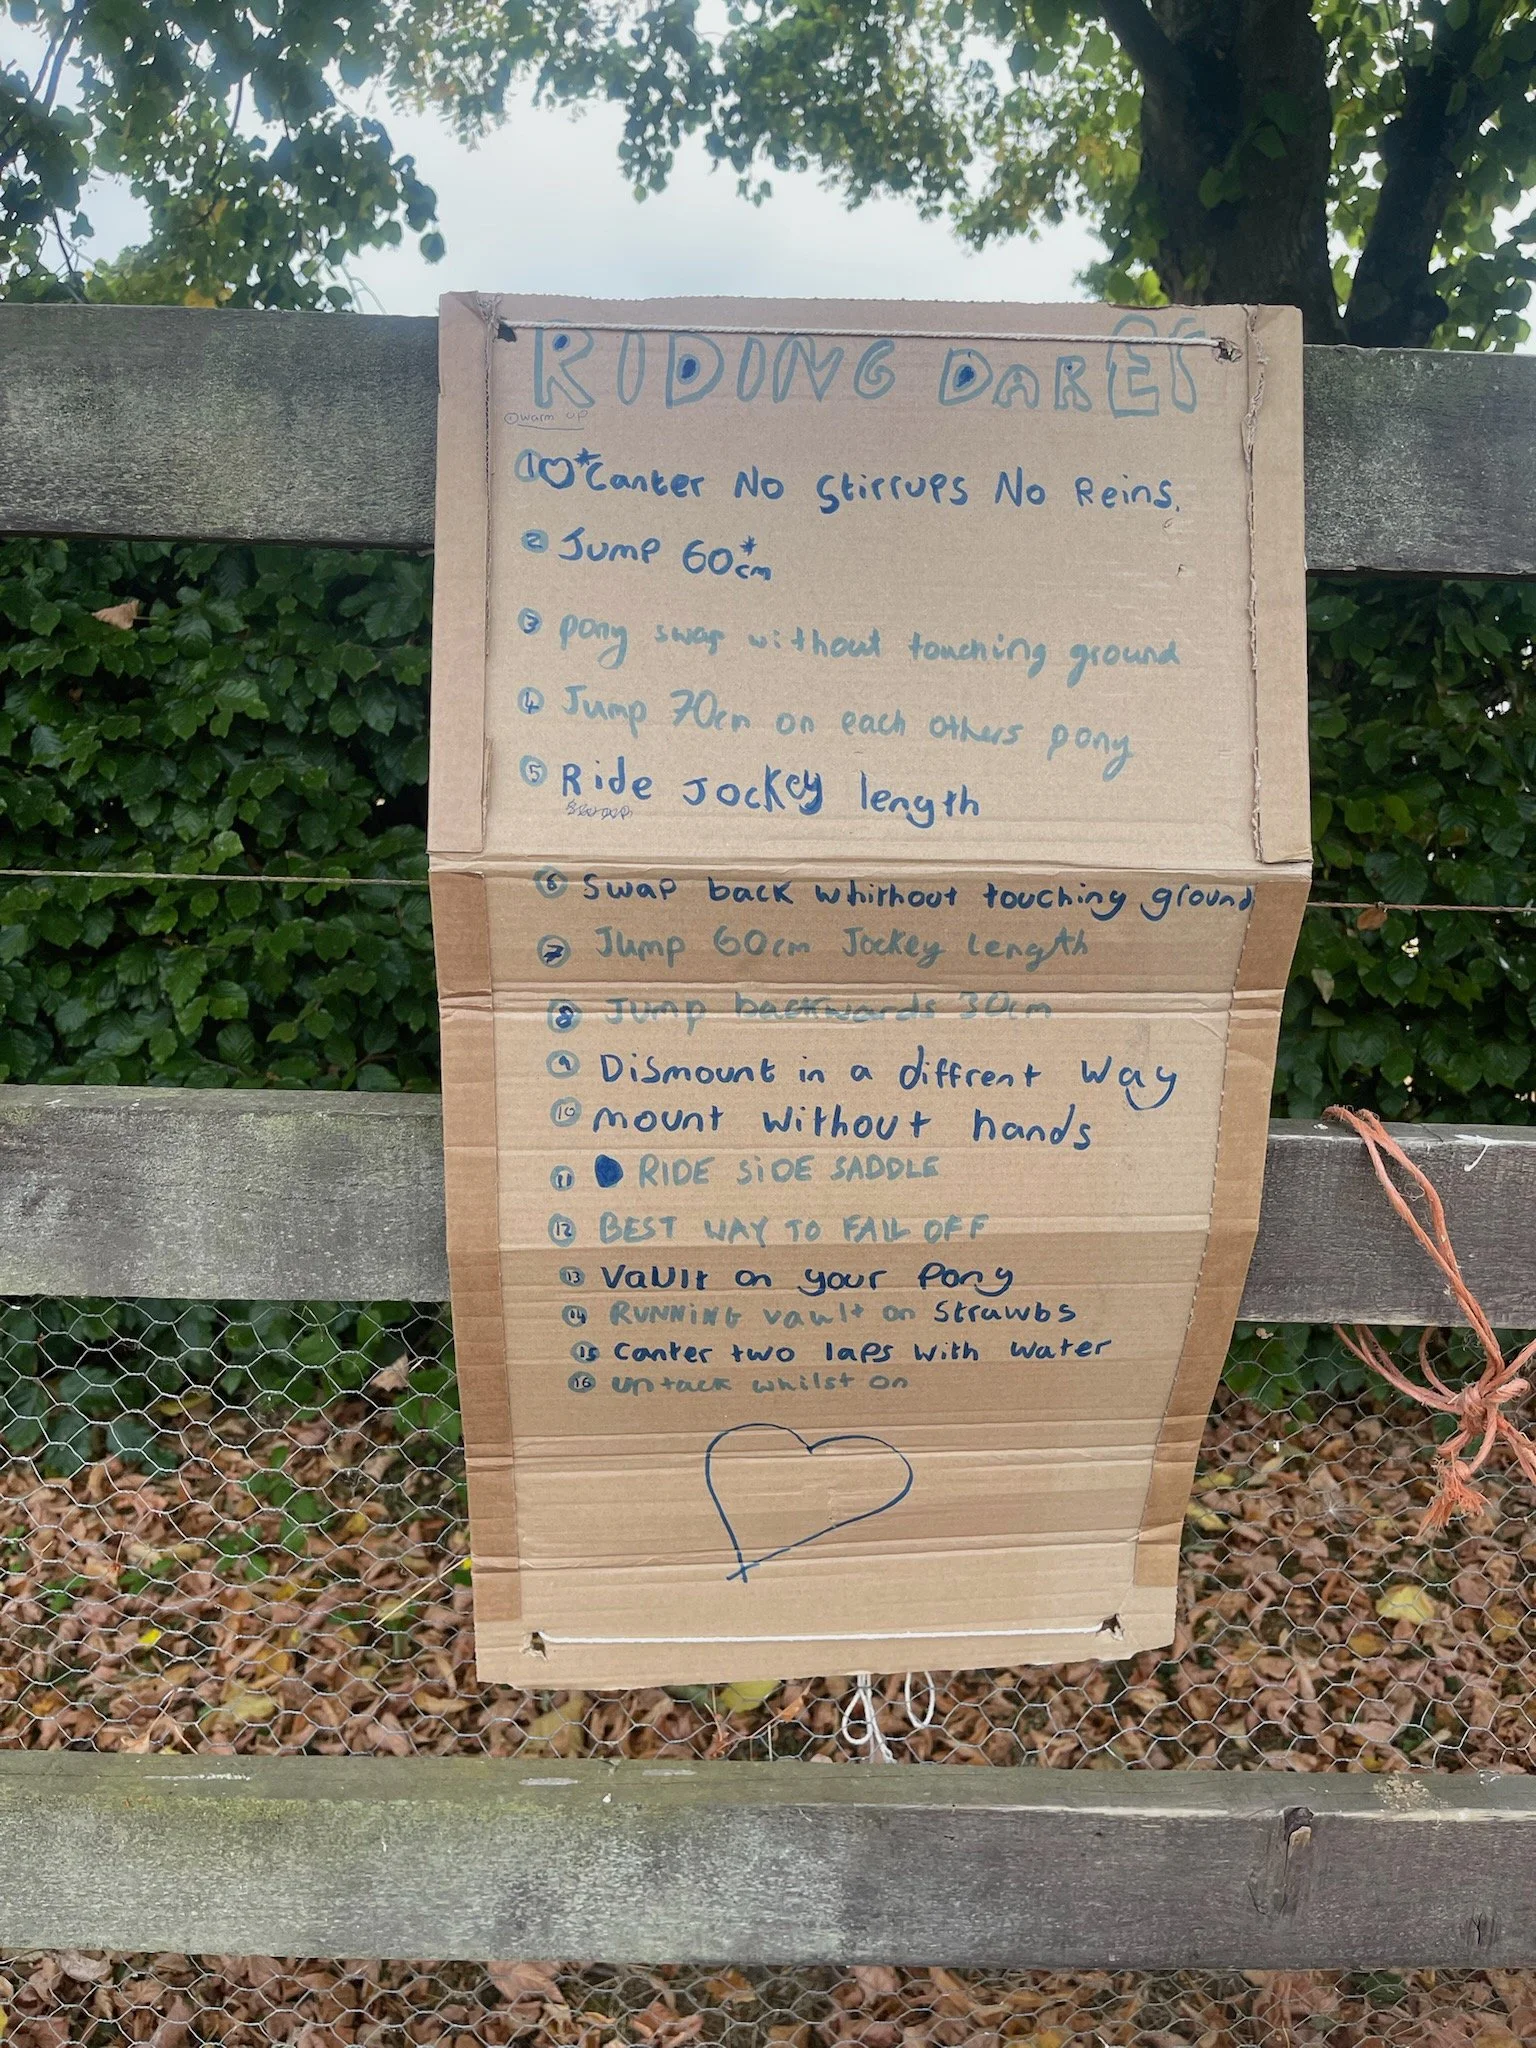 RIDING DARES
① warm up
① ♡ * Canter No Stirrups No Reins.
② Jump 60*cm
③ pony swap without touching ground
④ Jump 70cm on each others pony
⑤ Ride Jockey length
⑥ Swap back whithout touching ground
⑦ Jump 60cm Jockey length
⑧ Jump backwards 30cm
⑨ Dismount in a diffrent way
⑩ mount without hands
⑪ RIDE SIDE SADDLE
⑫ BEST WAY TO FALL OFF
⑬ Vault on your pony
⑭ RUNNING vault on Strawbs
⑮ Canter two laps with water
⑯ untack whilst on